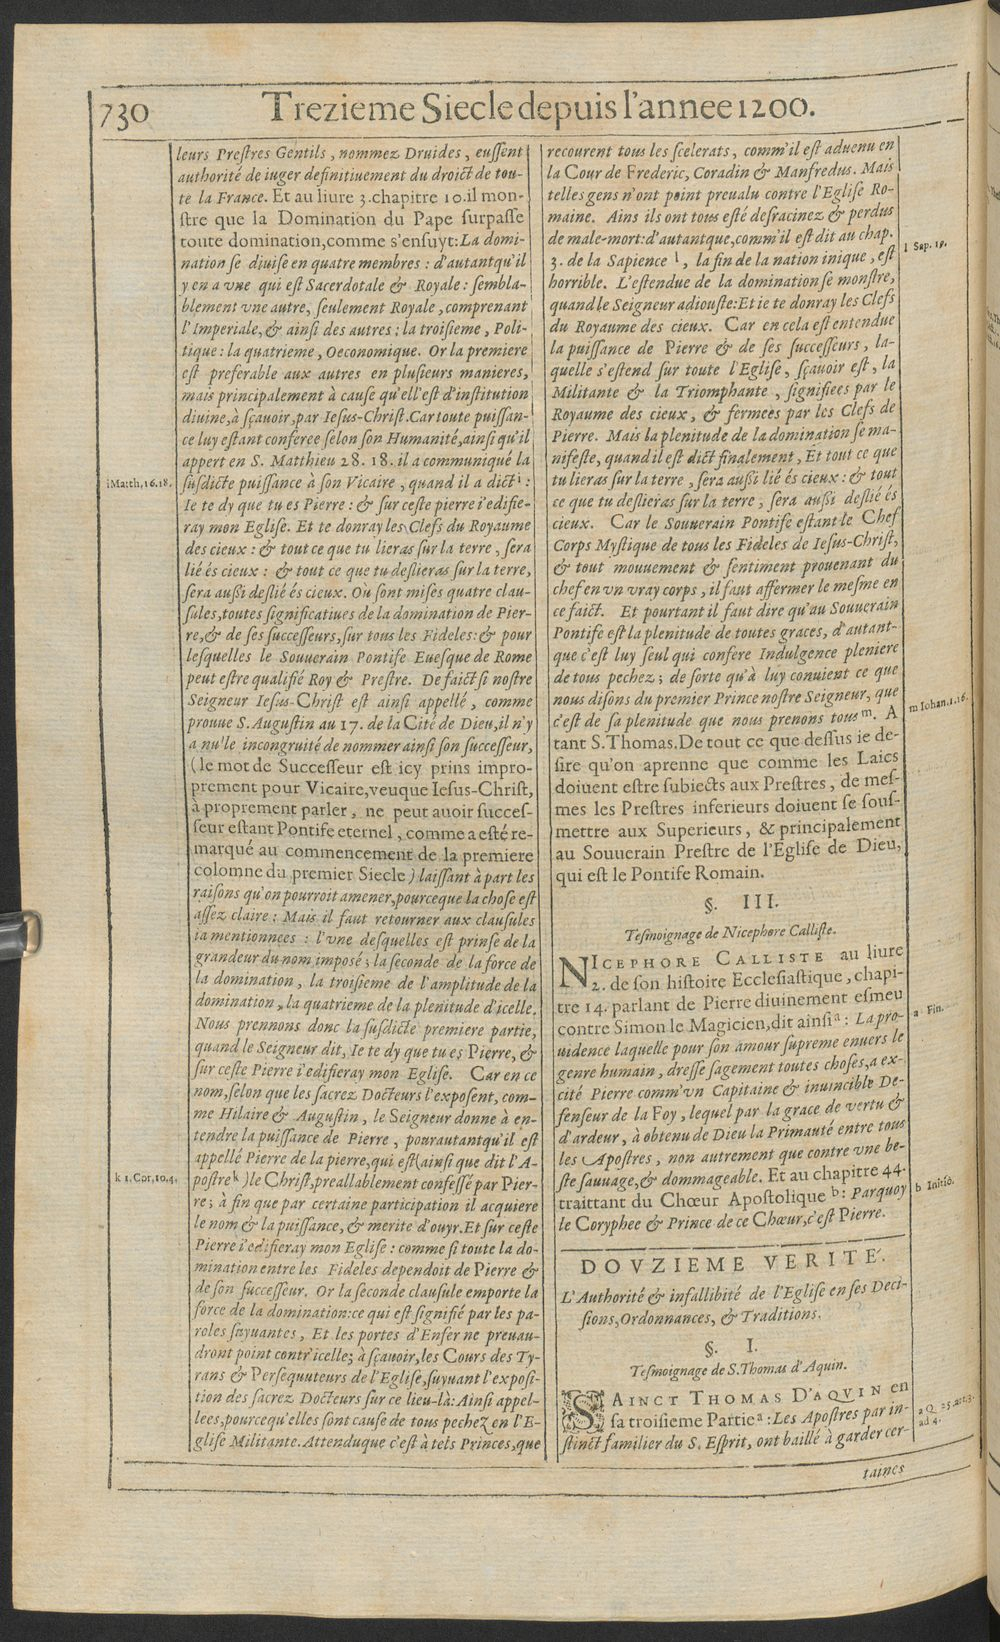 730 Trezieme Siecle depuis l'annee 1200.
leurs Prestres Gentils, nommez Druides, eussent
authorité de iuger definitiuement du droict de tou-
te la France. Et au liure 3. chapitre 10. il mon-
stre que la Domination du Pape surpasse
toute domination, comme s'ensuyt: La domi-
nation se diuise en quatre membres : d'autantqu'il
y en a vne qui est Sacerdotale & Royale : sembla-
blement vne autre, seulement Royale, comprenant
l'Imperiale, & ainsi des autres ; la troisieme, Poli-
tique : la quatrieme, Oeconomique. Or la premiere
est preferable aux autres en plusieurs manieres,
mais principalement à cause qu'ell'est d'institution
diuine, à sçauoir, par Iesus-Christ. Car toute puissan-
ce luy estant conferee selon son Humanité, ainsi qu'il
appert en S. Matthieu 28. 18. il a communiqué la
susdicte puissance à son Vicaire, quand il a dict i :
Ie te dy que tu es Pierre : & sur ceste pierre i'edifie-
ray mon Eglise. Et te donray les Clefs du Royaume
des cieux : & tout ce que tu lieras sur la terre, sera
lié és cieux : & tout ce que tu deslieras sur la terre,
sera aussi deslié és cieux. Où sont mises quatre clau-
sules, toutes significatiues de la domination de Pier-
re, & de ses successeurs, sur tous les Fideles : & pour
lesquelles le Souuerain Pontife Euesque de Rome
peut estre qualifié Roy & Prestre. De faict si nostre
Seigneur Iesus-Christ est ainsi appellé, comme
prouue S. Augustin au 17. de la Cité de Dieu, il n'y
a nulle incongruité de nommer ainsi son successeur,
(le mot de Successeur est icy prins impro-
prement pour Vicaire, veuque Iesus-Christ,
à proprement parler, ne peut auoir succes-
seur estant Pontife eternel, comme a esté re-
marqué au commencement de la premiere
colomne du premier Siecle) laissant à part les
raisons qu'on pourroit amener, pourceque la chose est
assez claire : Mais il faut retourner aux clausules
ia mentionnees : l'vne desquelles est prinse de la
grandeur du nom imposé ; la seconde de la force de
la domination, la troisieme de l'amplitude de la
domination, la quatrieme de la plenitude d'icelle.
Nous prennons donc la susdicte premiere partie,
quand le Seigneur dit, Ie te dy que tu es Pierre, &
sur ceste Pierre i'edifieray mon Eglise. Car en ce
nom, selon que les sacrez Docteurs l'exposent, com-
me Hilaire & Augustin, le Seigneur donne à en-
tendre la puissance de Pierre, pourautantqu'il est
appellé Pierre de la pierre, qui est (ainsi que dit l'A-
postre k) le Christ, preallablement confessé par Pier-
re ; à fin que par certaine participation il acquiere
le nom & la puissance, & merite d'ouyr. Et sur ceste
Pierre i'edifieray mon Eglise : comme si toute la do-
mination entre les Fideles dependoit de Pierre &
de son successeur. Or la seconde clausule emporte la
force de la domination : ce qui est signifié par les pa-
roles suyuantes, Et les portes d'Enfer ne preuau-
dront point contr'icelle ; à sçauoir, les Cours des Ty-
rans & Persequuteurs de l'Eglise, suyuant l'exposi-
tion des sacrez Docteurs sur ce lieu-là : Ainsi appel-
lees, pourcequ'elles sont cause de tous pechez en l'E-
glise Militante. Attenduque c'est à tels Princes, que
i Matth. 16. 18.
k 1. Cor. 10. 4.
recourent tous les scelerats, comm'il est aduenu en
la Cour de Frederic, Coradin & Manfredus. Mais
telles gens n'ont point preualu contre l'Eglise Ro-
maine. Ains ils ont tous esté desracinez & perdus
de male-mort : d'autantque, comm'il est dit au chap.
3. de la Sapience l, la fin de la nation inique, est
horrible. L'estendue de la domination se monstre,
quand le Seigneur adiouste : Et ie te donray les Clefs
du Royaume des cieux. Car en cela est entendue
la puissance de Pierre & de ses successeurs, la-
quelle s'estend sur toute l'Eglise, sçauoir est, la
Militante & la Triomphante, signifiees par le
Royaume des cieux, & fermees par les Clefs de
Pierre. Mais la plenitude de la domination se ma-
nifeste, quand il est dict finalement, Et tout ce que
tu lieras sur la terre, sera aussi lié és cieux : & tout
ce que tu deslieras sur la terre, sera aussi deslié és
cieux. Car le Souuerain Pontife estant le Chef
Corps Mystique de tous les Fideles de Iesus-Christ,
& tout mouuement & sentiment prouenant du
chef en vn vray corps, il faut affermer le mesme en
ce faict. Et pourtant il faut dire qu'au Souuerain
Pontife est la plenitude de toutes graces, d'autant-
que c'est luy seul qui confere Indulgence pleniere
de tous pechez ; de sorte qu'à luy conuient ce que
nous disons du premier Prince nostre Seigneur, que
c'est de sa plenitude que nous prenons tous m. A
tant S. Thomas. De tout ce que dessus ie de-
sire qu'on aprenne que comme les Laics
doiuent estre subiects aux Prestres, de mes-
mes les Prestres inferieurs doiuent se sous-
mettre aux Superieurs, & principalement
au Souuerain Prestre de l'Eglise de Dieu,
qui est le Pontife Romain.
§. III.
Tesmoignage de Nicephore Calliste.
NICEPHORE CALLISTE au liure
2. de son histoire Ecclesiastique, chapi-
tre 14. parlant de Pierre diuinement esmeu
contre Simon le Magicien, dit ainsi a : La pro-
uidence laquelle pour son amour supreme enuers le
genre humain, dresse sagement toutes choses, a ex-
cité Pierre comm'vn Capitaine & inuincible De-
fenseur de la Foy, lequel par la grace de vertu &
d'ardeur, à obtenu de Dieu la Primauté entre tous
les Apostres, non autrement que contre vne be-
ste sauuage, & dommageable. Et au chapitre 44.
traittant du Chœur Apostolique b : Parquoy
le Coryphee & Prince de ce Chœur, c'est Pierre.
DOVZIEME VERITÉ.
L'Authorité & infallibité de l'Eglise en ses Deci-
sions, Ordonnances, & Traditions.
§. I.
Tesmoignage de S. Thomas d'Aquin.
SAINCT THOMAS D'AQVIN en
sa troisieme Partie a : Les Apostres par in-
stinct familier du S. Esprit, ont baillé à garder cer-
taines
l Sap. 19.
m Iohan. 1. 16.
a Fin.
b Initio.
a Q. 25. art. 3.
ad 4.